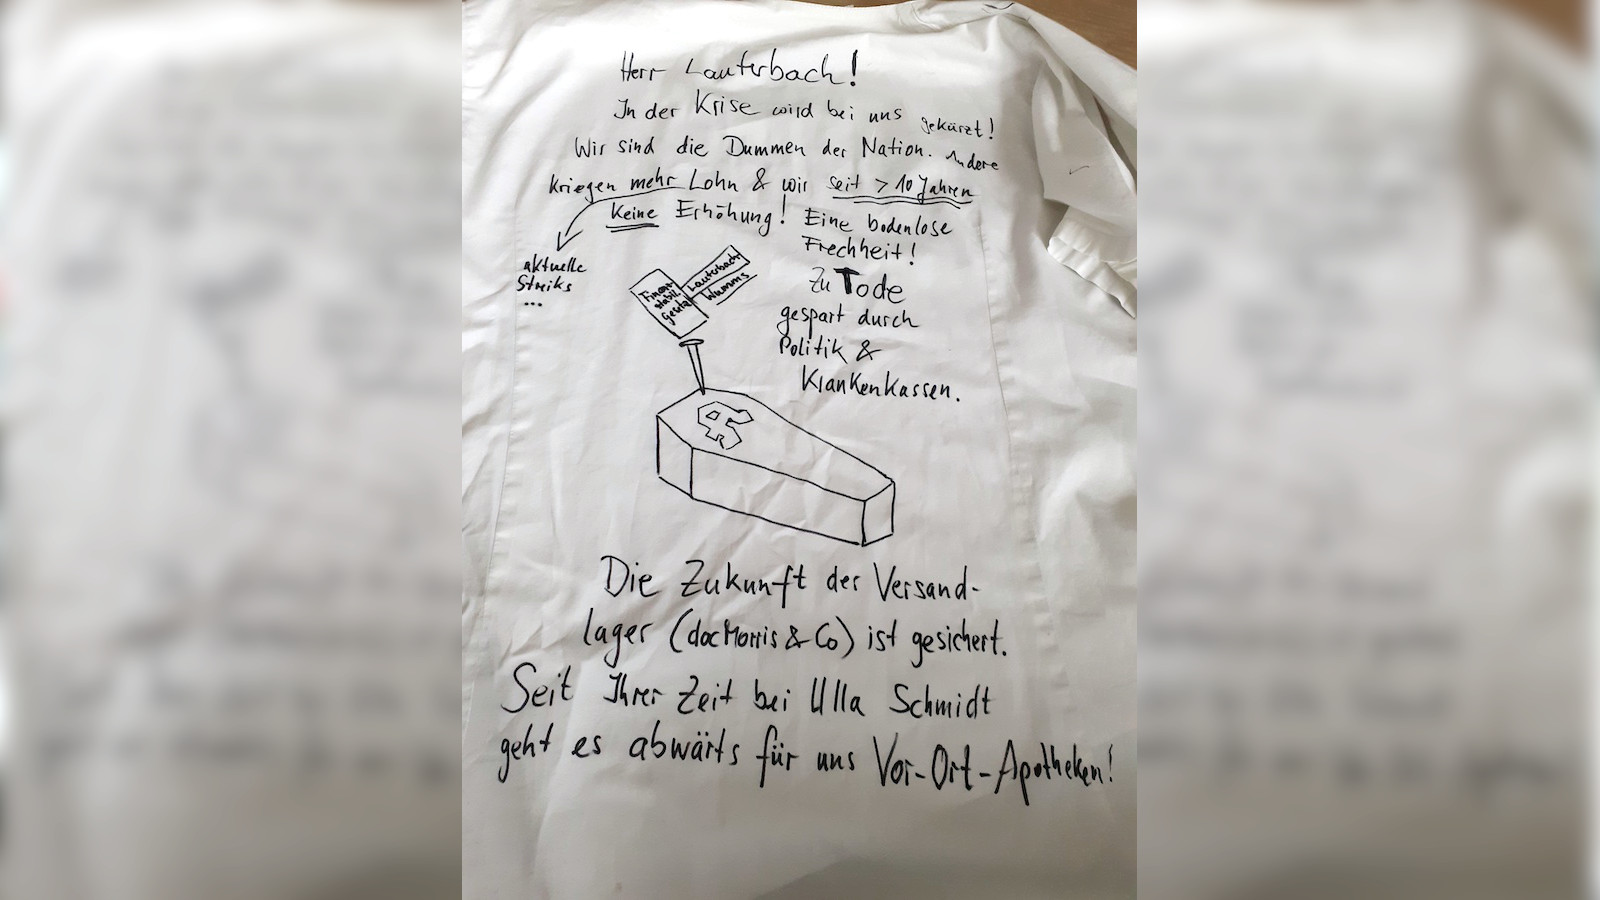 Herr Lauterbach!
In der Krise wird bei uns gekürzt!
Wir sind die Dummen der Nation. Andere
kriegen mehr Lohn & wir seit > 10 Jahren
keine Erhöhung! Eine bodenlose
Frechheit!
aktuelle
Streiks
...
Finanz-
stabil.
Gesetz
Lauterbach
Wumms
Zu Tode
gespart durch
Politik &
Krankenkassen.
Die Zukunft der Versand-
lager (docMorris & Co) ist gesichert.
Seit Ihrer Zeit bei Ulla Schmidt
geht es abwärts für uns Vor-Ort-Apotheken!